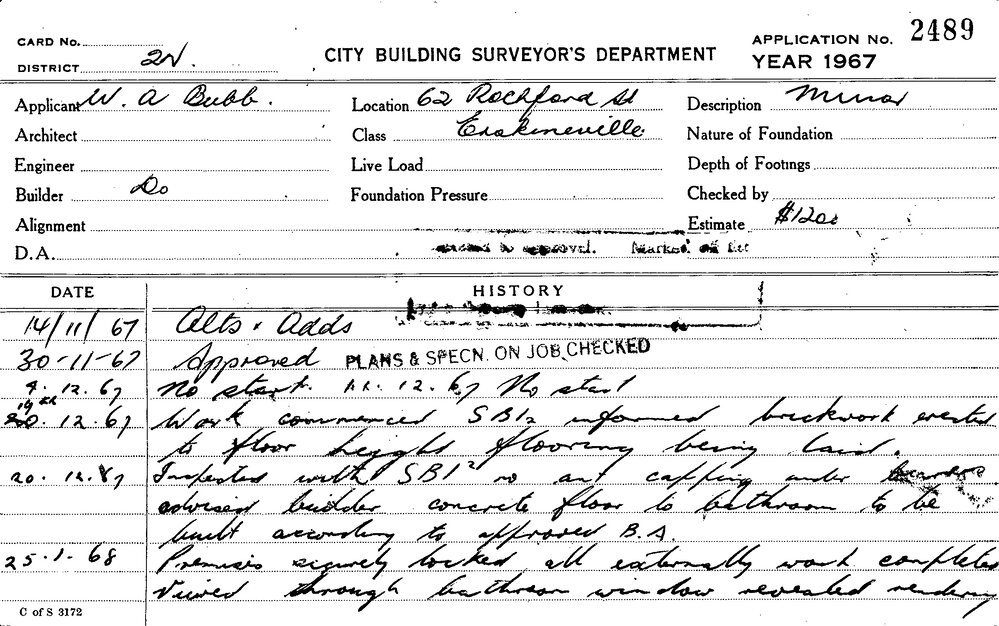 CARD No.
DISTRICT 2N.
CITY BUILDING SURVEYOR'S DEPARTMENT
APPLICATION No. 2489
YEAR 1967
Applicant W. A Bubb. Location 62 Rochford St Description Minor
Architect Class Erskineville Nature of Foundation
Engineer Live Load Depth of Footings
Builder Do Foundation Pressure Checked by
Alignment Estimate $1200
D.A. approval. Marked off
DATE HISTORY
14/11/67 Alts & Adds
30-11-67 Approved PLANS & SPECN. ON JOB CHECKED
4.12.67 No start. 12.67 No start
19th
20.12.67 Work commenced SBI2 informed brickwork erected
to floor height flooring being laid.
20.12.67 Inspected with SBI2 no ant capping under bearers
advised builder concrete floor to bathroom to be
built according to approved B.A.
25.1.68 Premises securely locked all externally work completed
Viewed through bathroom window revealed rendering
C of S 3172